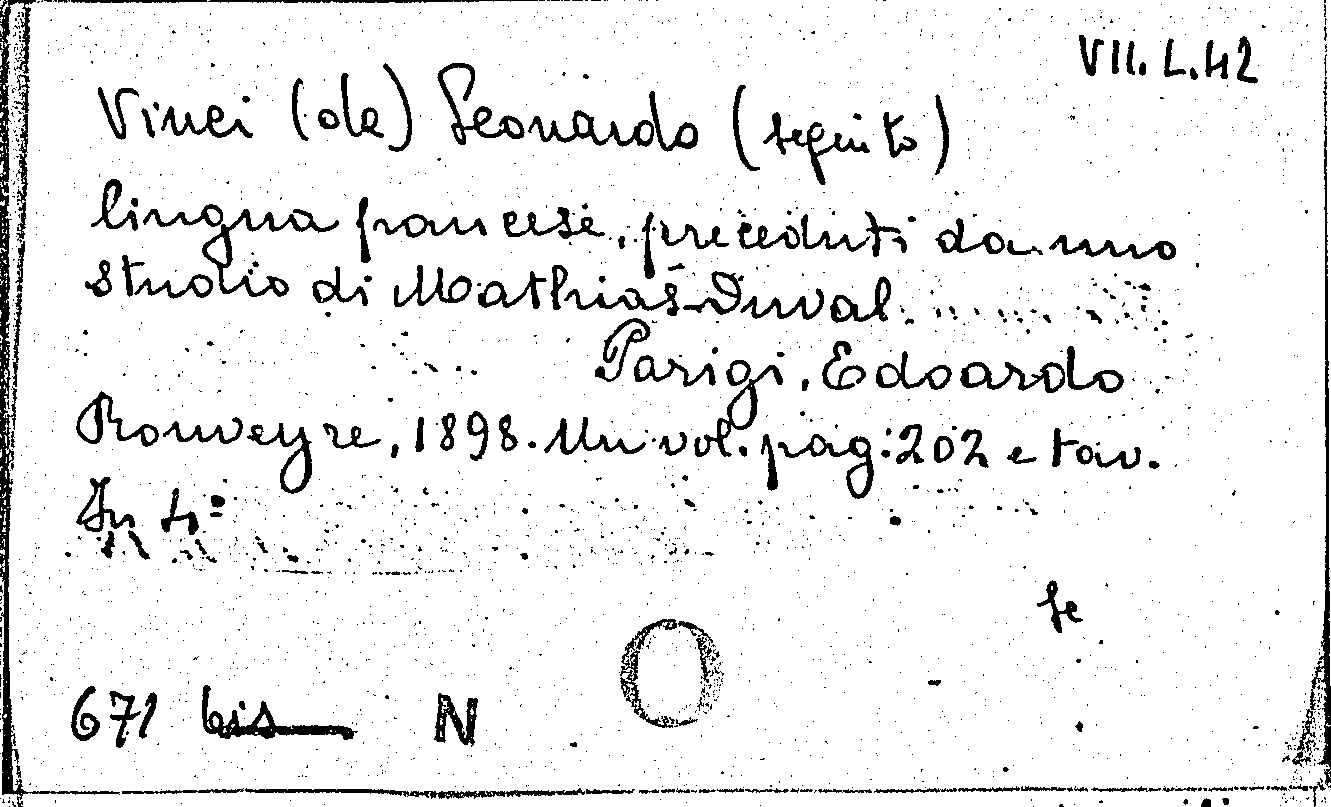 VII. L. 42
Vinci (da) Leonardo (seguito)
lingua francese, preceduti da uno
studio di Mathias-Duval.
Parigi, Edoardo
Rouveyre, 1898. Un vol. pag: 202 e tav.
In 4º
fe
671 bis N